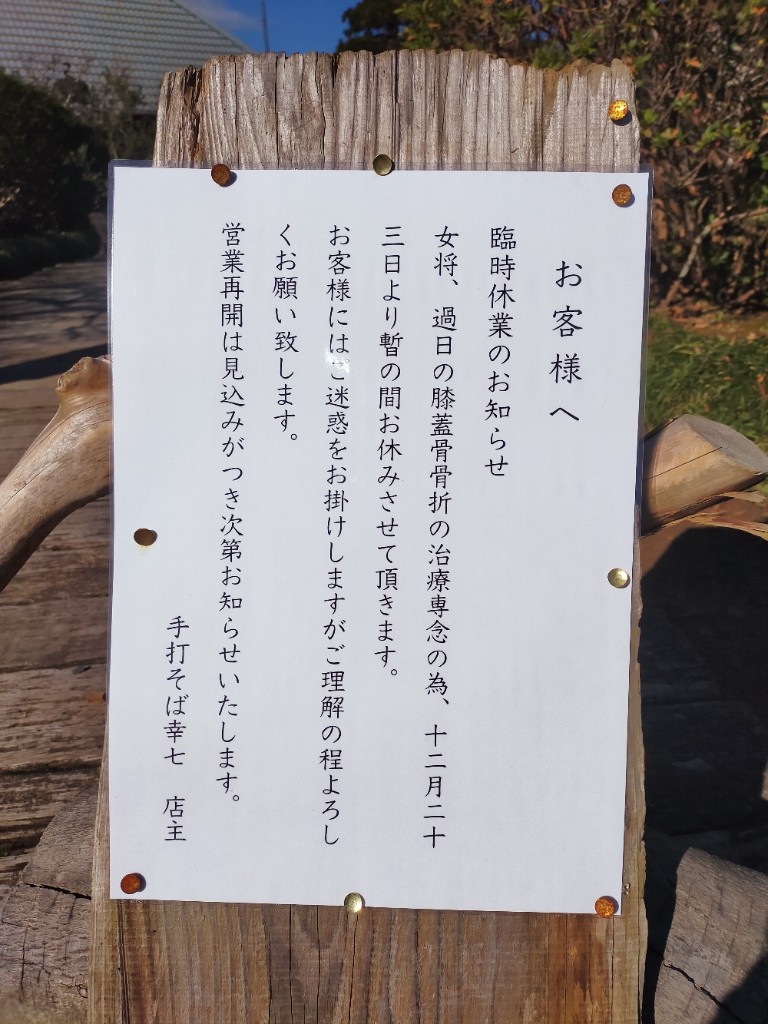 お客様へ
臨時休業のお知らせ
女将、過日の膝蓋骨骨折の治療専念の為、十二月二十
三日より暫の間お休みさせて頂きます。
お客様にはご迷惑をお掛けしますがご理解の程よろし
くお願い致します。
営業再開は見込みがつき次第お知らせいたします。
手打そば幸七　店主